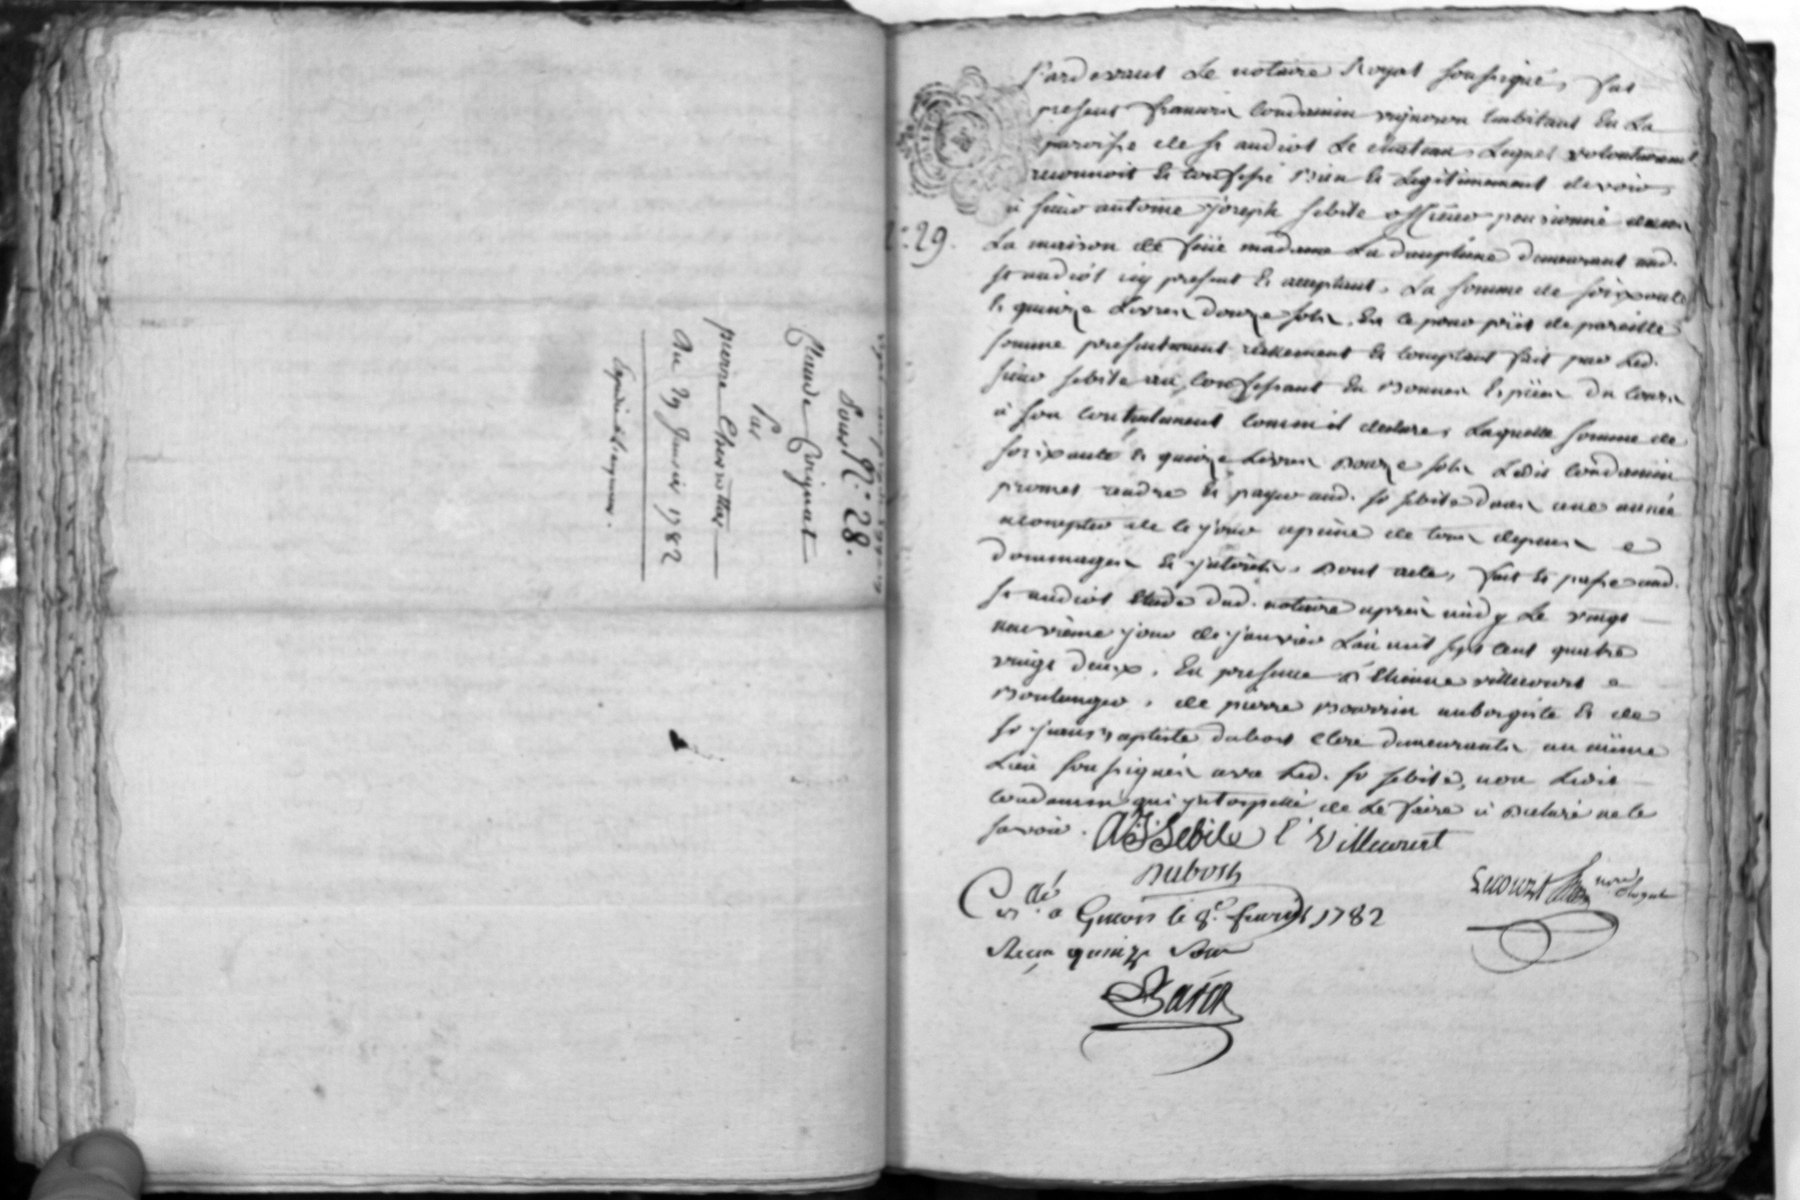 Pour N.° 28.
Claude Crignat
Par
pierre
Au 29 Janvier 1782
N.° 29.
Pardevant Le notaire Royal soussigné, fut
present francois Condamin vigneron habitant En La
paroisse de st andiol Le chateau, Lequel volontairement
reconnoit Et confesse Bien Et Legitimement devoir
à sieur antoine joseph sebile officier pensionné dans
La maison de füe madame La dauphine demeurant aud.
st andiol icy present Et acceptant, La somme de soixante
Et quinze Livres douze sols, En ce pour prêt de pareille
somme presentement réellement Et comptant fait par Led.
sieur sebile au confessant En Bonnes Espèces du cours
à son contentement comm'il declare, Laquelle somme de
soixante Et quinze Livres Douze sols Ledit Condamin
promet rendre Et payer aud. sr sebile dans une année
acompter de ce jour apeine de tous depens
dommages Et jnterets, Dont acte, fait Et passé aud.
st andiol Etude dud. notaire après midy Le vingt
neuvieme jour de janvier L'an mil sept cent quatre
vingt deux, En presence d'Etienne villecourt
Boulanger, de pierre Bourrin aubergiste Et de
sr jean Baptiste dubost clerc demeurants au même
Lieu soussignés avec Led. sr sebile, non Ledit
Condamin qui jnterpellé de Le faire a Declaré ne le
savoir. A J Sebile E Villecourt
Dubost
Con.lé a le 8.e fevrier 1782
Recu quinze Sou